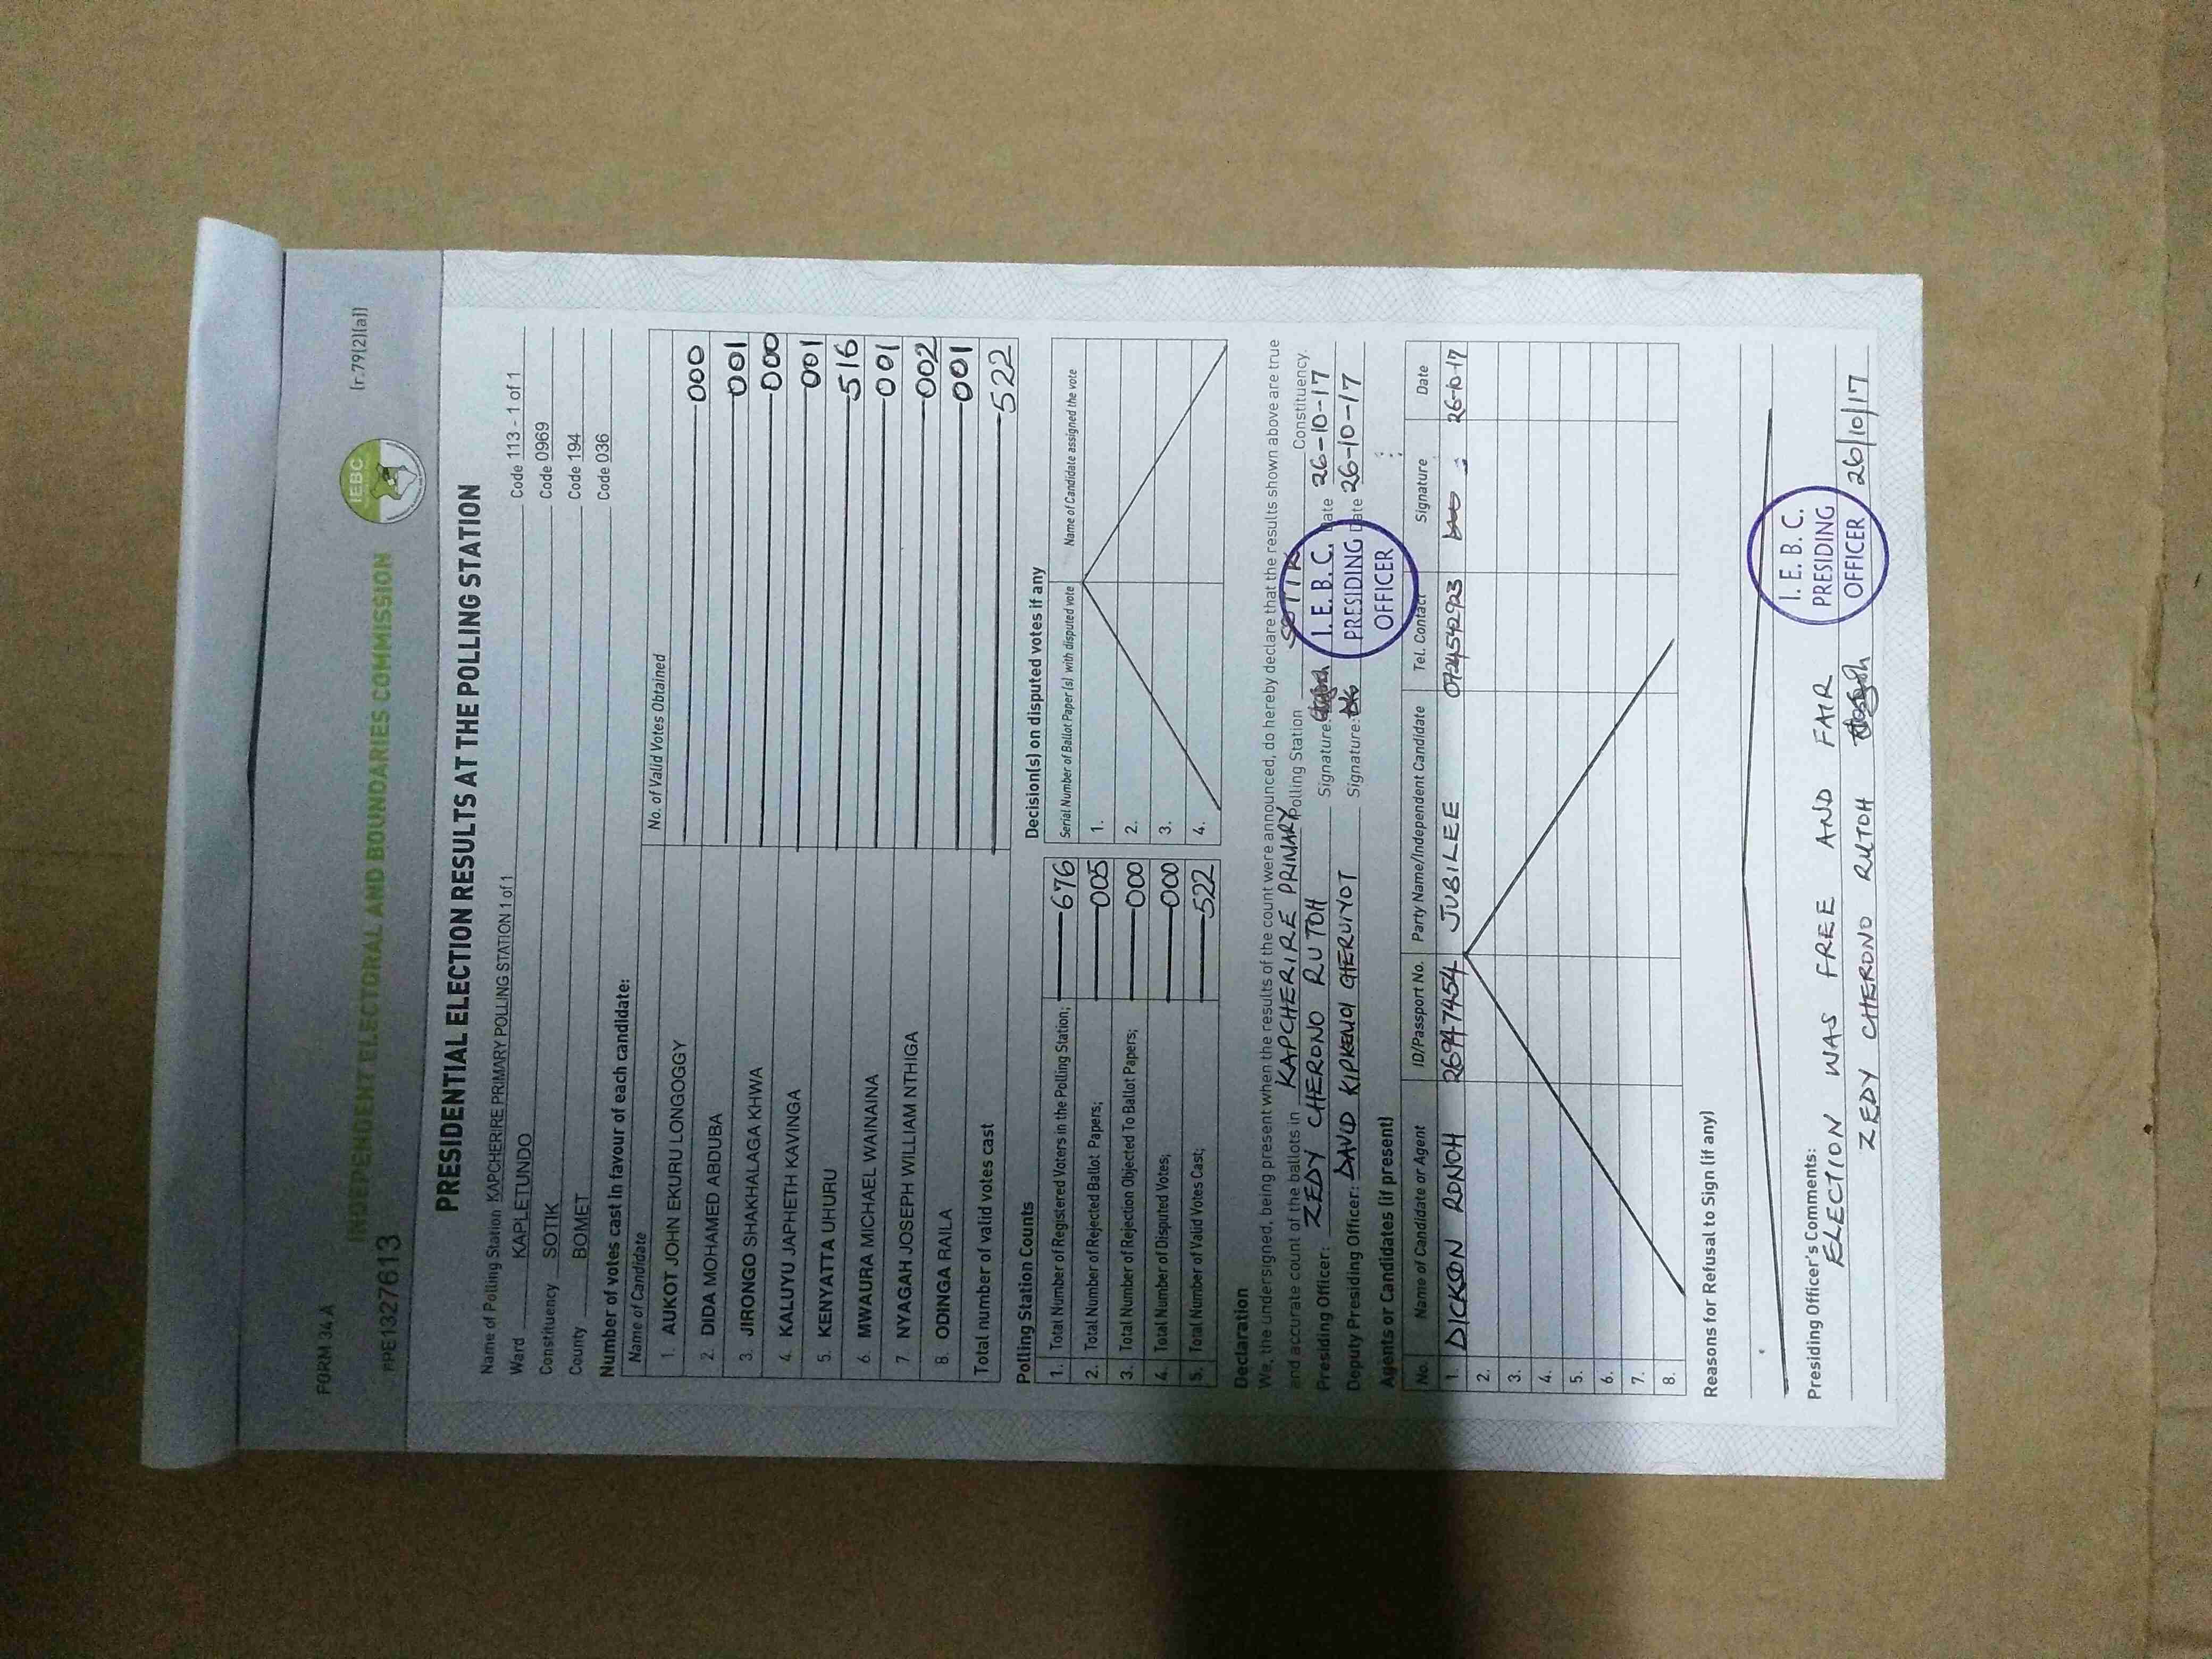 FORM 34 A
(r.79(2)(a))
INDEPENDENT ELECTORAL AND BOUNDARIES COMMISSION
IEBC
PPE1327613
PRESIDENTIAL ELECTION RESULTS AT THE POLLING STATION
Name of Polling Station KAPCHERIRE PRIMARY POLLING STATION 1 of 1 Code 113 - 1 of 1
Ward KAPLETUNDO Code 0969
Constituency SOTIK Code 194
County BOMET Code 036
Number of votes cast in favour of each candidate:
Name of Candidate No. of Valid Votes Obtained
1. AUKOT JOHN EKURU LONGOGGY 000
2. DIDA MOHAMED ABDUBA 001
3. JIRONGO SHAKHALAGA KHWA 000
4. KALUYU JAPHETH KAVINGA 001
5. KENYATTA UHURU 516
6. MWAURA MICHAEL WAINAINA 001
7 NYAGAH JOSEPH WILLIAM NTHIGA 002
8. ODINGA RAILA 001
Total number of valid votes cast 522
Polling Station Counts
1. Total Number of Registered Voters in the Polling Station; 676
2. Total Number of Rejected Ballot Papers; 005
3. Total Number of Rejection Objected To Ballot Papers; 000
4. Total Number of Disputed Votes; 000
5. Total Number of Valid Votes Cast; 522
Decision(s) on disputed votes if any
Serial Number of Ballot Paper (s) with disputed vote Name of Candidate assigned the vote
1.
2.
3.
4.
Declaration
We, the undersigned, being present when the results of the count were announced, do hereby declare that the results shown above are true
and accurate count of the ballots in KAPCHERIRE PRIMARY Polling Station SOTIK Constituency.
Presiding Officer: ZEDY CHERONO RUTOH Signature: Date 26-10-17
Deputy Presiding Officer: DAVID KIPKEMOI CHERUIYOT Signature: Date 26-10-17
I. E. B. C.
PRESIDING
OFFICER
Agents or Candidates (if present)
No. Name of Candidate or Agent ID/Passport No. Party Name/Independent Candidate Tel. Contact Signature Date
1. DICKSON RONOH 26947454 JUBILEE 0724592923 26-10-17
2.
3.
4.
5.
6.
7.
8.
Reasons for Refusal to Sign (if any)
Presiding Officer's Comments:
ELECTION WAS FREE AND FAIR
ZEDY CHERONO RUTOH 26/10/17
I. E. B. C.
PRESIDING
OFFICER